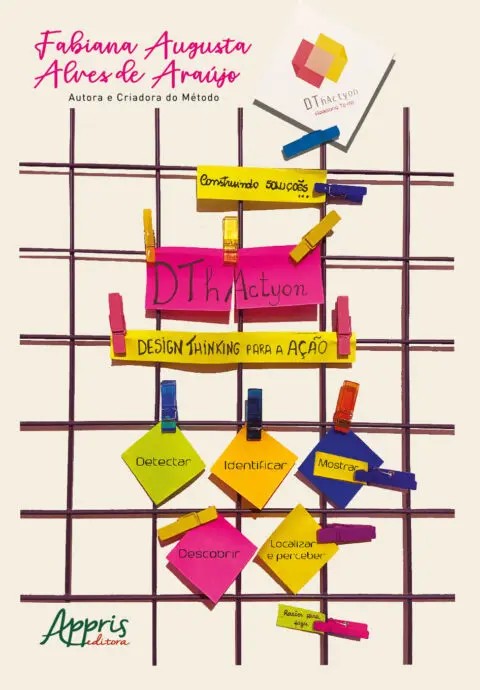 Fabiana Augusta
Alves de Araújo
Autora e Criadora do Método
DThActyon
Construindo SOLUÇÕES...
DThActyon
DESIGN THINKING PARA A AÇÃO
Detectar
Identificar
Mostrar
Descobrir
Localizar
e perceber
Razões para
Appris
editora